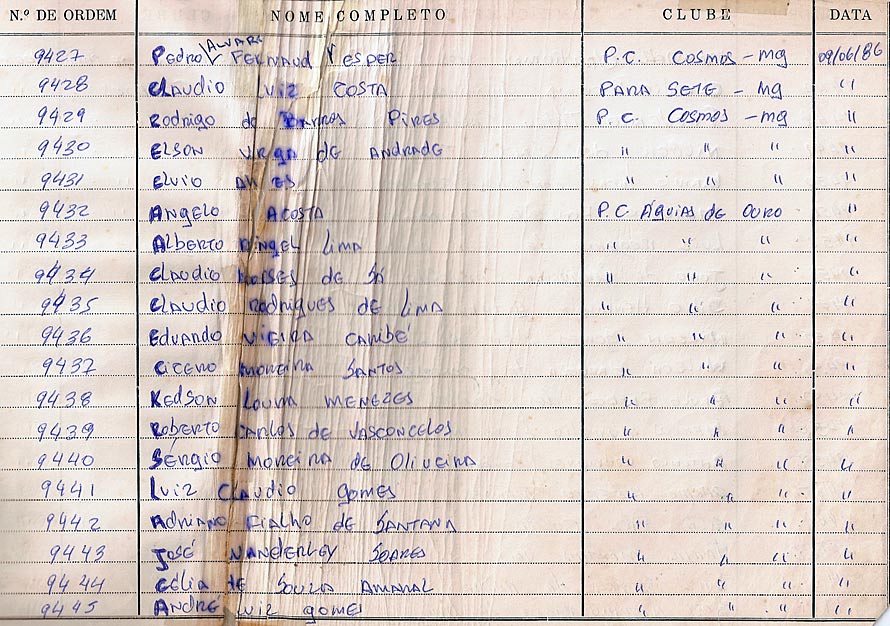 N.º DE ORDEM NOME COMPLETO CLUBE DATA
9427 Pedro Alvaro Fernaud Yesper P.C. Cosmos - MG 09/06/86
9428 Claudio Luiz Costa Para Sete - MG "
9429 Rodrigo de Barros Pires P.C. Cosmos - MG "
9430 Elson de Andrade " " " "
9431 Elvio " " " "
9432 Angelo Acosta P.C. Águias de Ouro "
9433 Alberto Lima " " " "
9434 Claudio Moises de Sá " " " "
9435 Claudio Rodrigues de Lima " " " "
9436 Eduardo Vieira Cambé " " " "
9437 Cicero Moreira Santos " " " "
9438 Kedson Loura Menezes " " " "
9439 Roberto Carlos de Vasconcelos " " " "
9440 Sérgio Moreira de Oliveira " " " "
9441 Luiz Claudio Gomes " " " "
9442 Adriano Fialho de Santana " " " "
9443 José Wanderley Soares " " " "
9444 Célia de Souza Amaral " " " "
9445 André Luiz Gomes " " " "